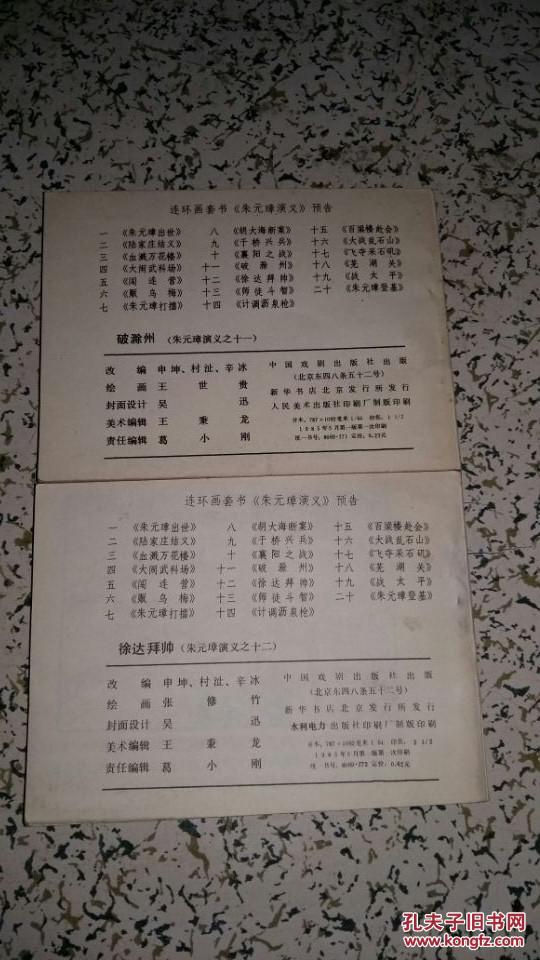 连环画套书《朱元璋演义》预告
一 《朱元璋出世》 八 《胡大海断案》 十五 《百梁楼赴会》
二 《陆家庄结义》 九 《于桥兴兵》 十六 《大战乱石山》
三 《血溅万花楼》 十 《襄阳之战》 十七 《飞夺采石矶》
四 《大闹武科场》 十一 《破滁州》 十八 《芜湖关》
五 《闯连营》 十二 《徐达拜帅》 十九 《战太平》
六 《贩乌梅》 十三 《师徒斗智》 二十 《朱元璋登基》
七 《朱元璋打擂》 十四 《计调沥泉枪》
破滁州 (朱元璋演义之十一)
改编 申坤、村沚、辛冰
绘画 王世贵
封面设计 吴迅
美术编辑 王秉龙
责任编辑 葛小刚
中国戏剧出版社出版
(北京东四八条五十二号)
新华书店北京发行所发行
人民美术出版社印刷厂制版印刷
开本:787×1092毫米1/64 印张:1 1/2
1985年5月第一版第一次印刷
统一书号:8069·271 定价:0.23元
连环画套书《朱元璋演义》预告
一 《朱元璋出世》 八 《胡大海断案》 十五 《百梁楼赴会》
二 《陆家庄结义》 九 《于桥兴兵》 十六 《大战乱石山》
三 《血溅万花楼》 十 《襄阳之战》 十七 《飞夺采石矶》
四 《大闹武科场》 十一 《破滁州》 十八 《芜湖关》
五 《闯连营》 十二 《徐达拜帅》 十九 《战太平》
六 《贩乌梅》 十三 《师徒斗智》 二十 《朱元璋登基》
七 《朱元璋打擂》 十四 《计调沥泉枪》
徐达拜帅 (朱元璋演义之十二)
改编 申坤、村沚、辛冰
绘画 张修竹
封面设计 吴迅
美术编辑 王秉龙
责任编辑 葛小刚
中国戏剧出版社出版
(北京东四八条五十二号)
新华书店北京发行所发行
水利电力出版社印刷厂制版印刷
开本:787×1092毫米1/64 印张:
1985年5月第一版第一次印刷
统一书号:8069·272 定价:
孔夫子旧书网
www.kongfz.com